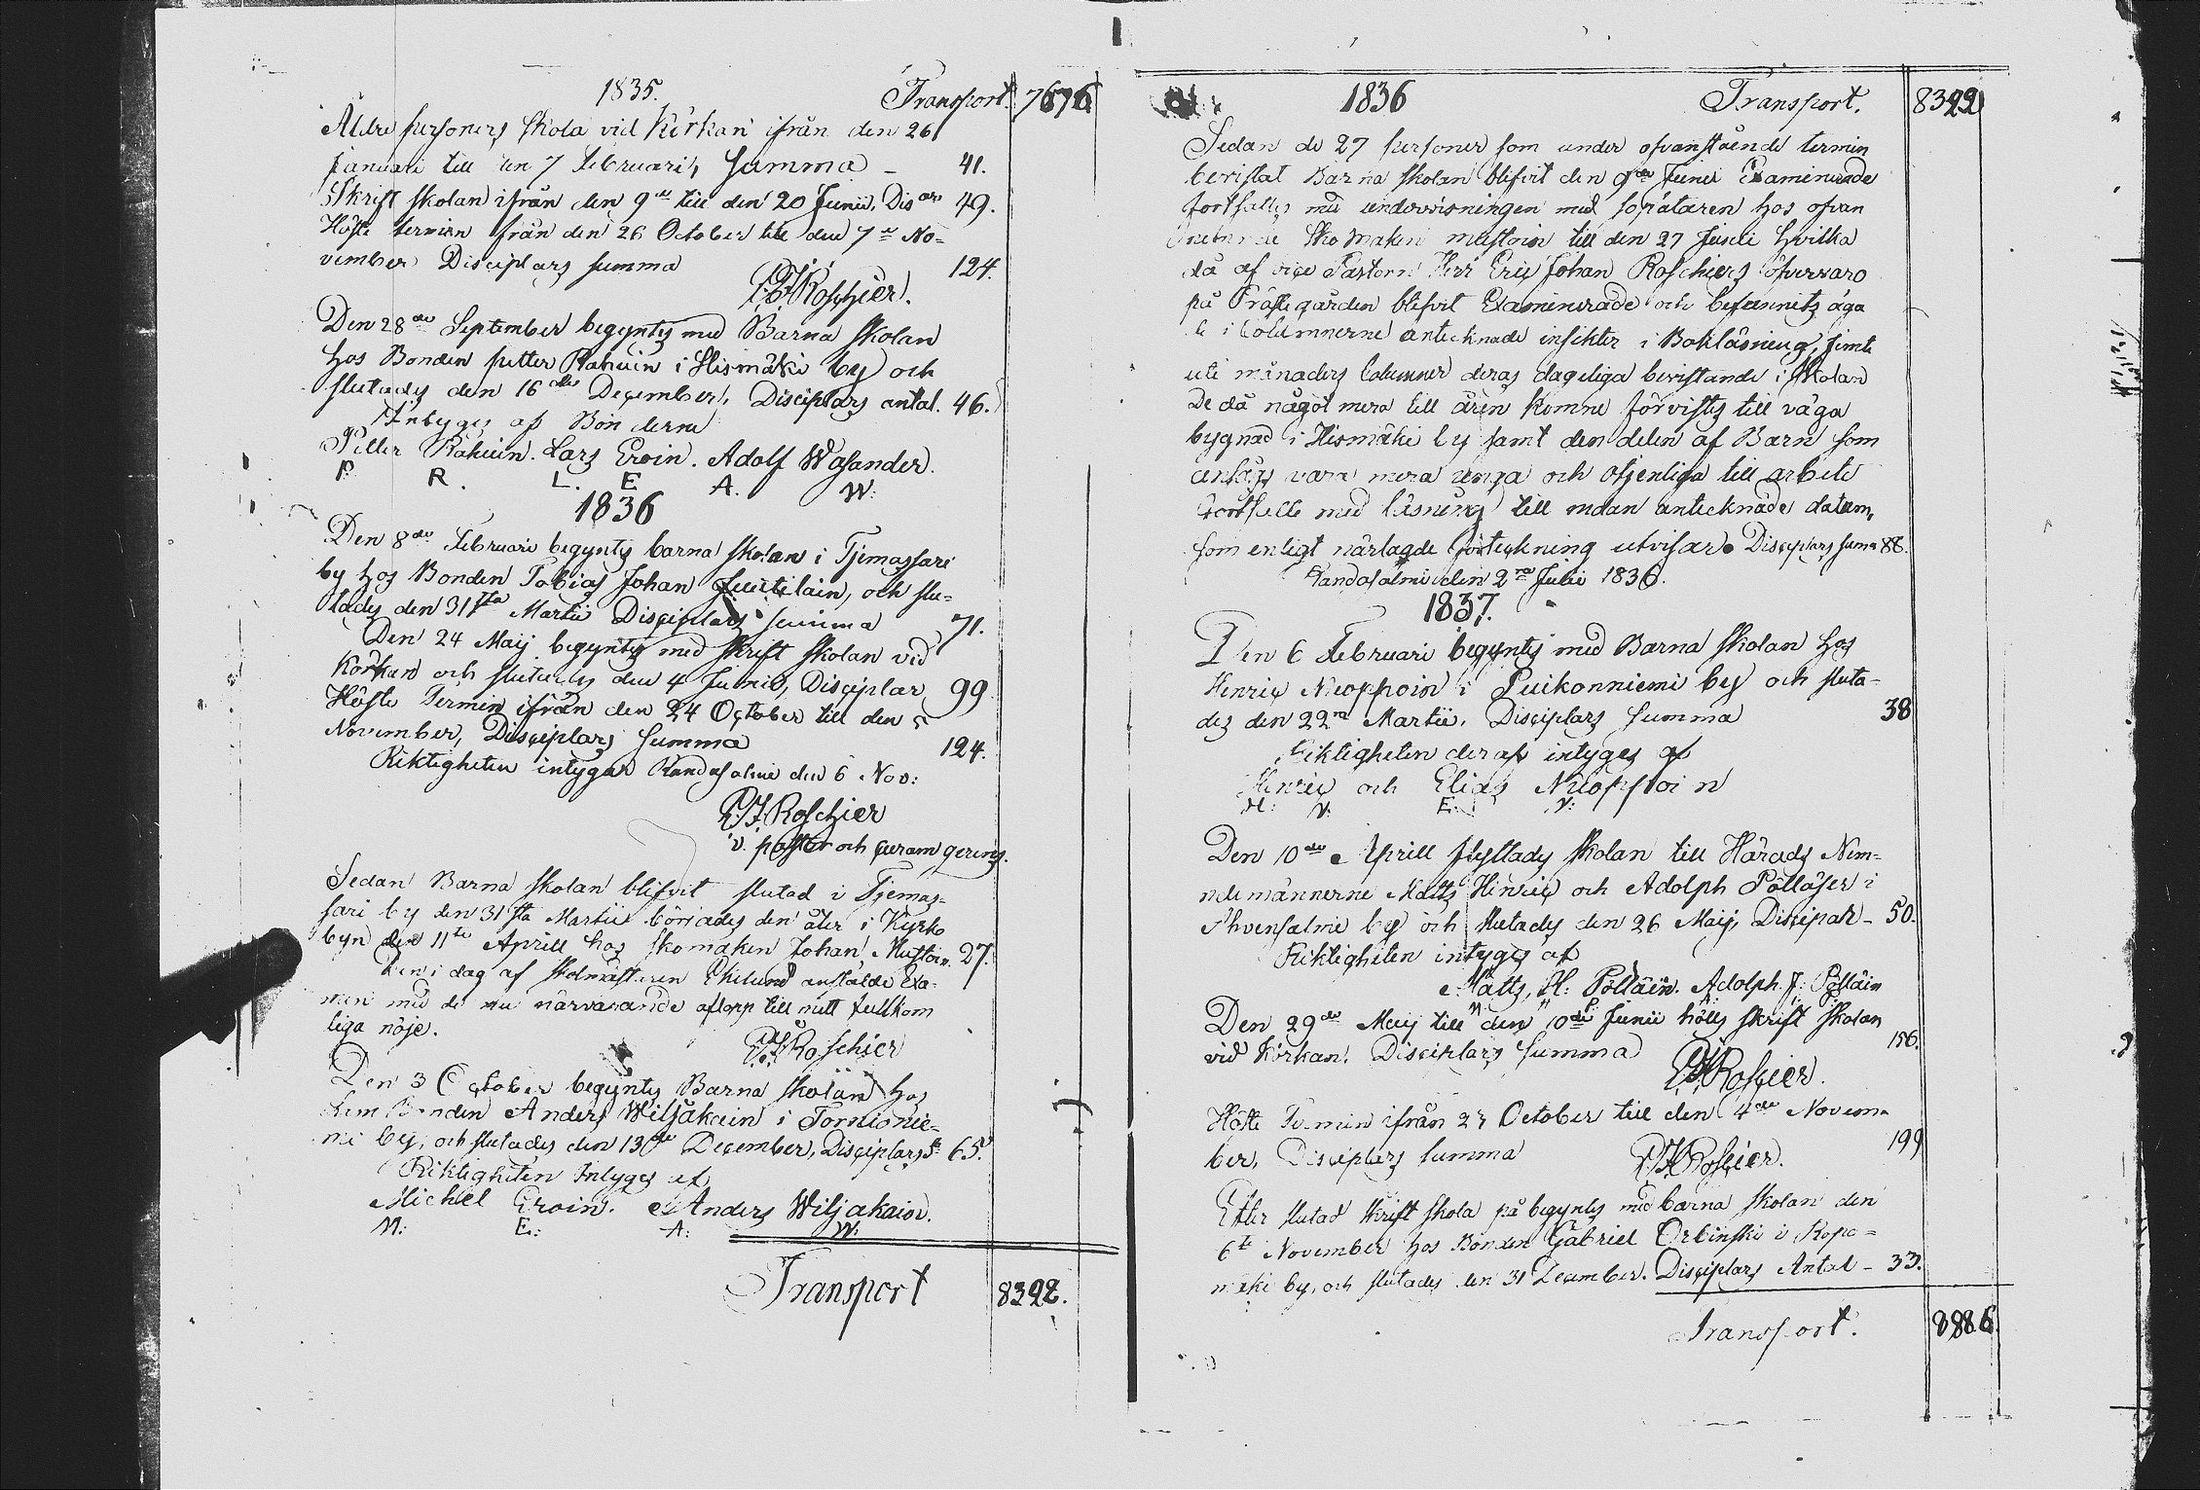 1835. Transport. 7676
Äldre personers skola vid Kÿrkan ifrån den 26
Januari till den 7 Februari, Summa - 41.
Skrift skolan ifrån den 9de till den 20 Junii, Dis 49.
Höste termien från den 26 October till den 7de No-
vember Disciplars summa 124.
E.J. Roschier.
Den 28de September begyntes med Barna skolan
hos Bonden petter Rahuin i Hismäki by och
slutades den 16de December, Disciplars antal. 46.
Intyges af Bönderne
Petter Rahuin. Lars Eroin. Adolf Wasander.
P. R. L. E A. W:
1836
Den 8de Februari begyntes barna skolan i Tjemassari
by hos Bonden Tobias Johan Juutilain, och slu-
tades den 31sta Martii Disciplars summa 71.
Den 24 Maij begyntes med skrift skolan vid
Körkan och slutades den 4 Junii, Disciplar 99
Höste Termin ifrån den 24 October till den 5
November, Disciplars summa 124.
Riktigheten intygar Randasalmi den 6 Nov:
E.J. Roschier
v. pastor och
Sedan Barna skolan blifvit slutad i Tjemas-
sari by den 31sta Martii börjades den åter i Kyrko
byn den 11te Aprill hos skomaken Johan Mustoin. 27.
Den i dag af skolmästaren Ekelund anstälde Exa-
men med de nu närvarande aflopp till mitt fullkom
liga nöje.
E.J. Roschier
Den 3 October begyntes Barna skolan hos
Bonden Anders Wiljakain i Tornionie-
mi by, och slutades den 13de December, Disciplars 65.
Riktigheten Intyges af
Michel Eroin. Anders Wiljakain.
M: E: A: W:
Transport 8392.
1836 Transport. 8392
Sedan de 27 personer som under ofvanstående termin
bevistat Barna skolan blifvit den 9de Junii Examinerade
fortfattes med undervisningen med hos ofvan
Sko maken Mustoin till den 27 Junii hvilka
då af vice Pastorn Herr Eric Johan Roschiers öfvervaro
på Prästegården blifvit Examinerade och befunnits äga
de i Columnerne antecknade insikter i Bokläsning, jemte
uti månaders Columner deras dageliga bevistande i skolan
De då något mera till åren komne förvistes till väga
bygnad i Hismäki by samt den delen af Barn som
ansågs vara mera unga och otjenliga till arbete
fortfatte med läsning till nedan antecknade datum,
som enligt närlagde förteckning utvisar. Disciplars suma 88.
Randasalmi den 2ra Julii 1836.
1837.
Den 6 Februari begyntes med Barna skolan hos
Henric Nuoppoin i Puikonniemi by och sluta-
des den 22ra Martii. Disciplars summa 38
Riktigheten deraf intyges af
Henric och Elias Nuoppoin
H: N: E: N:
Den 10de Aprill flyttades skolan till Härads Nem-
ndemännerne Matts Henric och Adolph Pölläser i
Ihvensalmi by och slutades den 26 Maij, Disipar - 50.
Riktigheten intyges af
Matts, H: Pölläin. Adolph. J: Pölläin
Den 29de Maij till den 10de Junii hölls skrift skolan
vid Kirkan. Disciplars summa 156.
E.J. Roschier.
Höste Termin ifrån 23 October till den 4de Novem-
ber, Disciplars summa 199
E.J. Roschier.
Efter slutad skrift skola på begyntes med barna skolan den
6te November hos Bonden Gabriel Orbinski i Ropo-
mäki by, och slutades den 31 December. Disciplars Antal - 33.
Transport. 8886